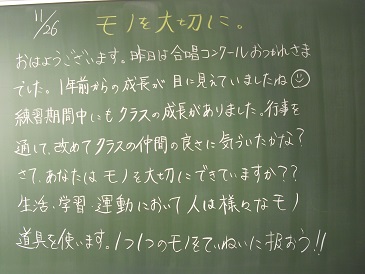 11/26
モノを大切に。
おはようございます。昨日は合唱コンクールおつかれさま
でした。1年前からの成長が目に見えていましたね
練習期間中にもクラスの成長がありました。行事を
通して、改めてクラスの仲間の良さに気づいたかな?
さて、あなたはモノを大切にできていますか??
生活・学習・運動において人は様々なモノ
道具を使います。1つ1つのモノをていねいに扱おう!!